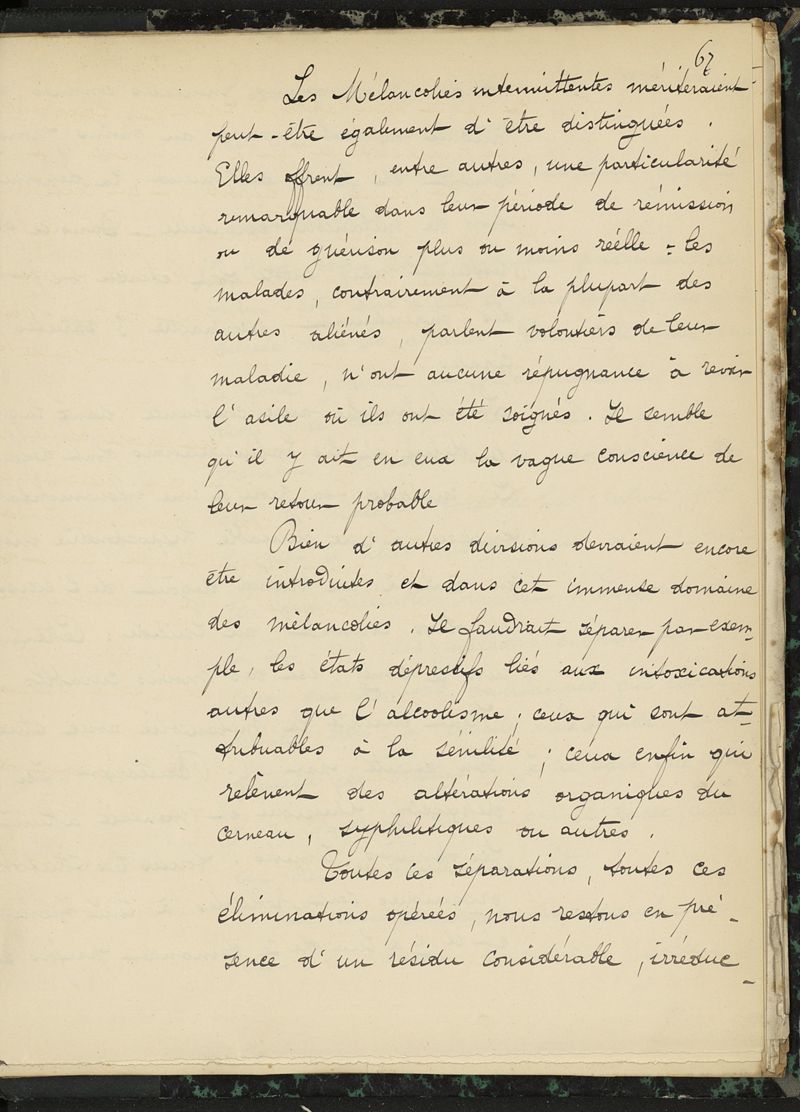 67
Les Mélancolies intermittentes mériteraient
peut-être également d'être distinguées.
Elles offrent, entre autres, une particularité
remarquable dans leur période de rémission
ou de guérison plus ou moins réelle = les
malades, contrairement à la plupart des
autres aliénés, parlent volontiers de leur
maladie, n'ont aucune répugnance à revoir
l'asile où ils ont été soignés. Il semble
qu'il y ait en eux la vague conscience de
leur retour probable
Bien d'autres divisions devraient encore
être introduites et dans cet immense domaine
des mélancolies. Il faudrait séparer par exem-
ple, les états dépressifs liés aux intoxications
autres que l'alcoolisme; ceux qui sont at-
tribuables à la sénilité; ceux enfin qui
relèvent des altérations organiques du
cerveau, syphilitiques ou autres.
Toutes ces séparations, toutes ces
éliminations opérées, nous restons en pré-
sence d'un résidu considérable, irréduc-